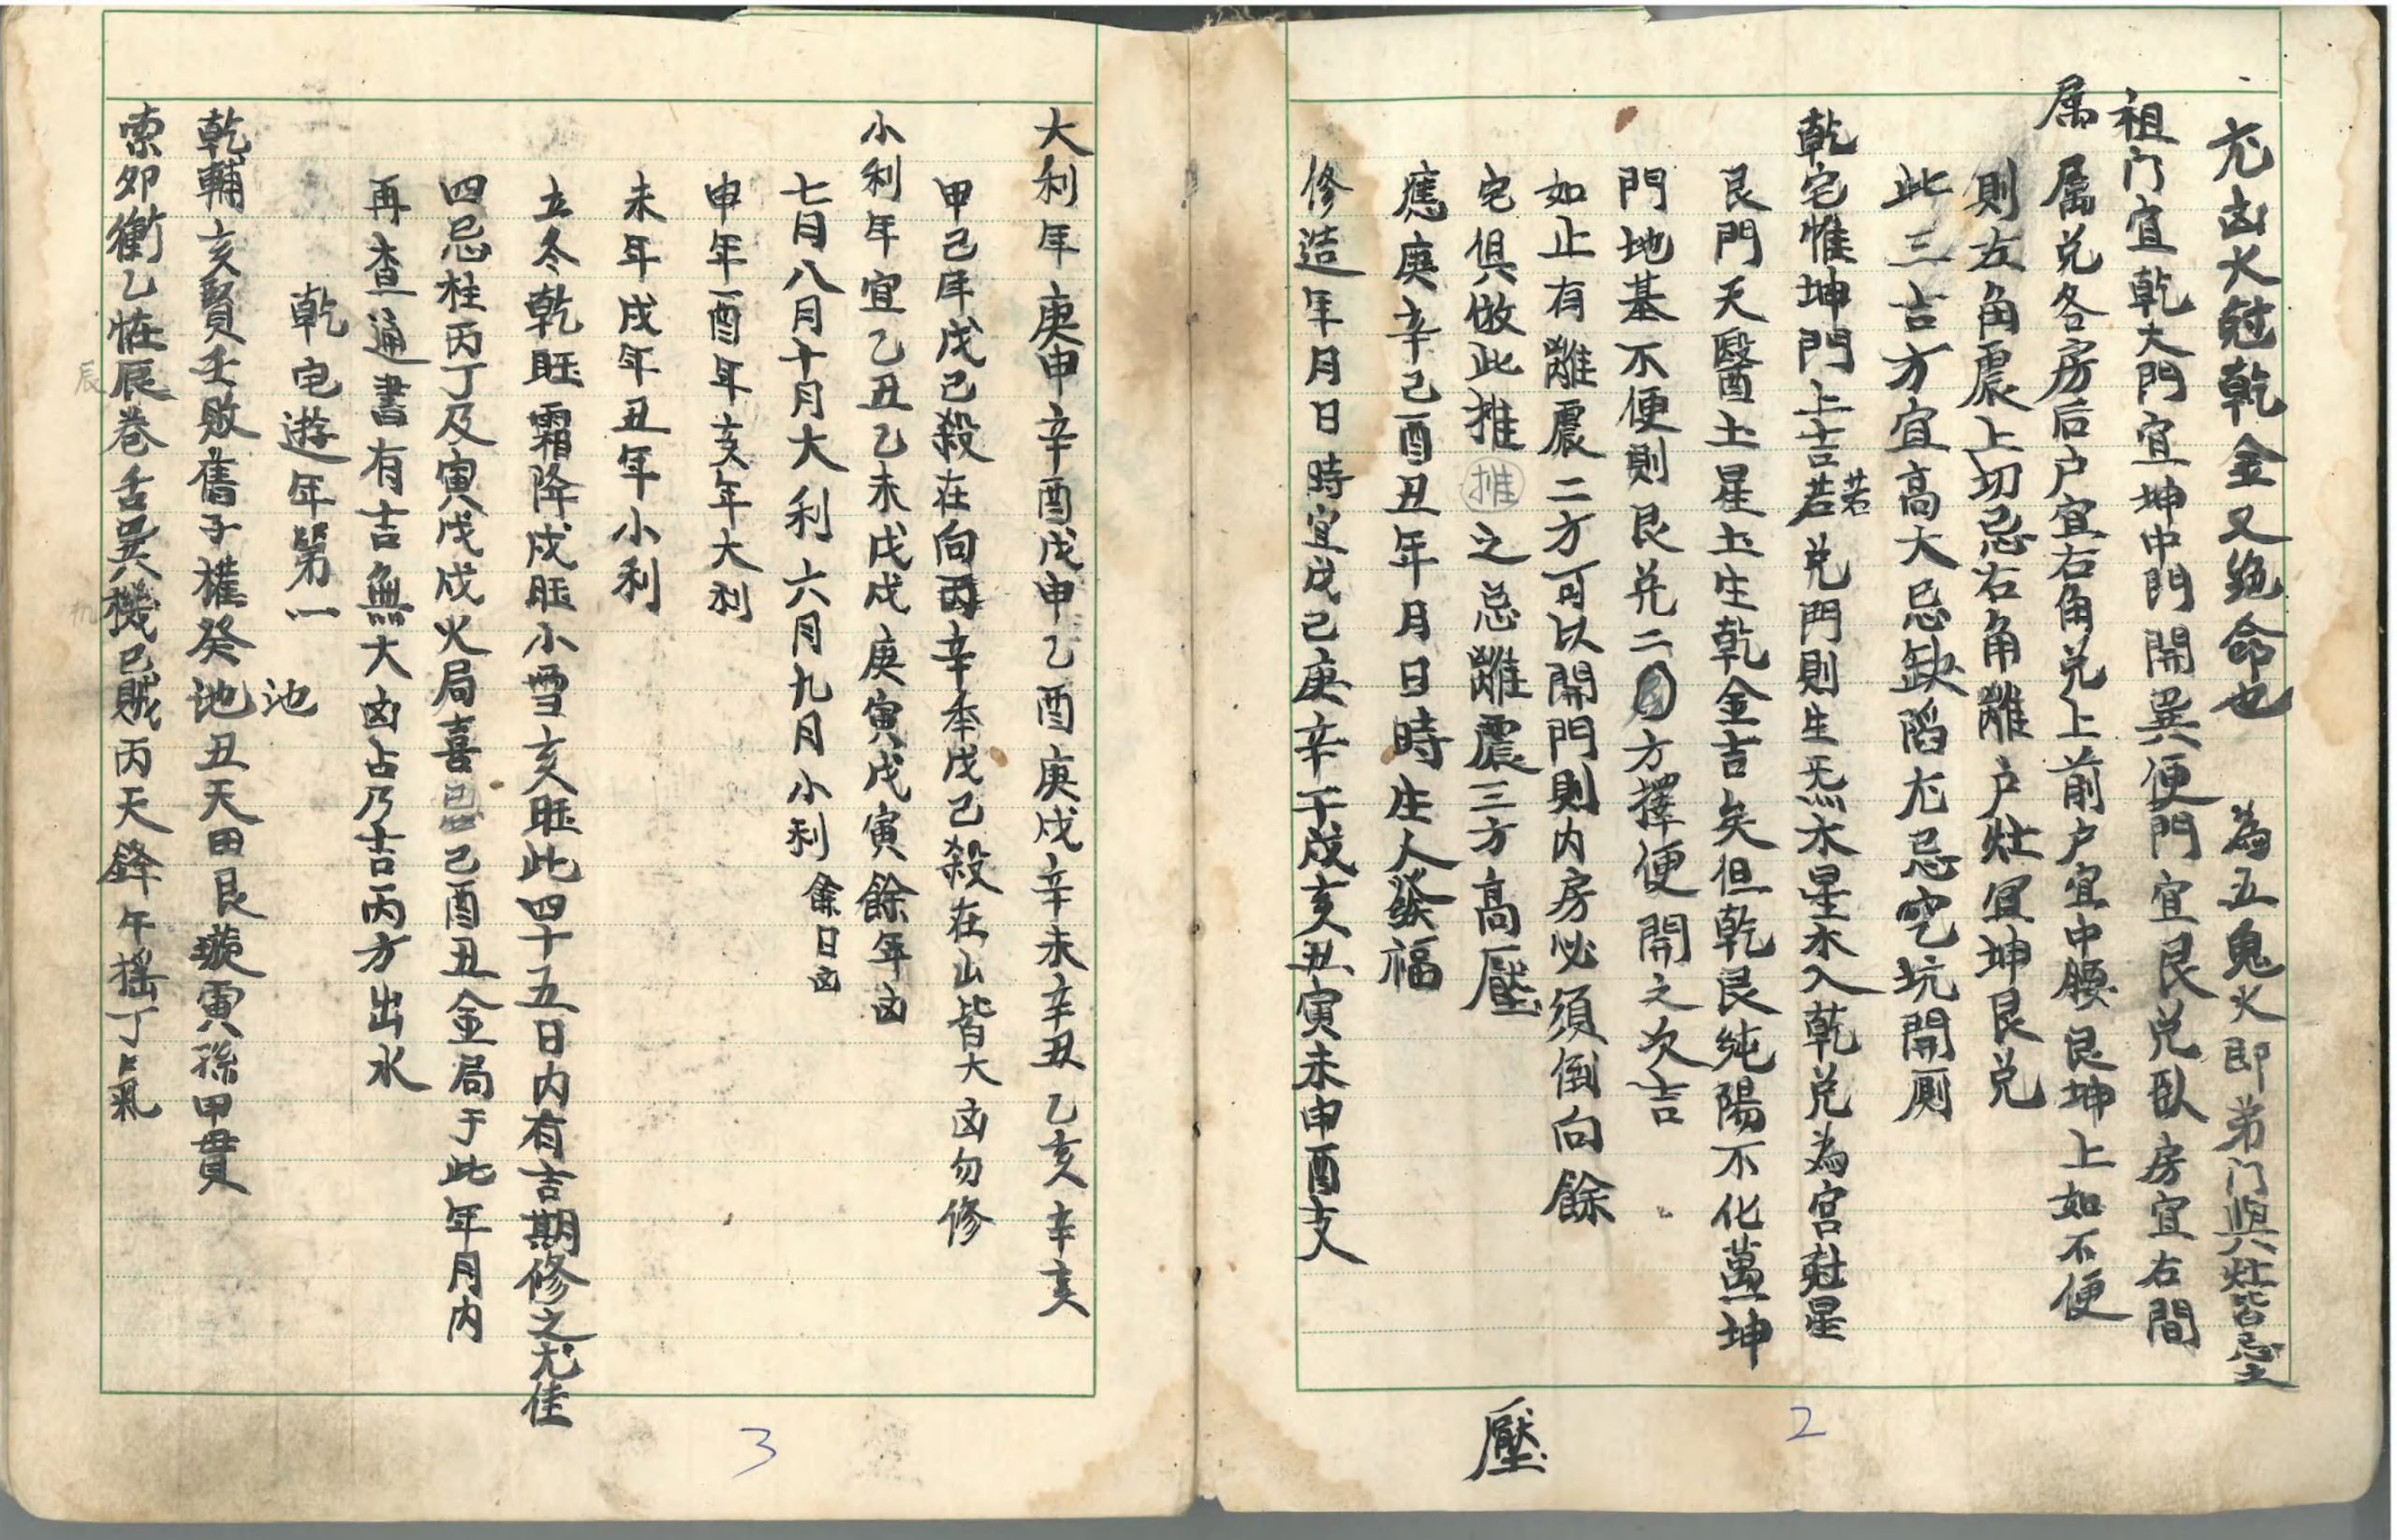 尤凶火尅乾金又絶命也 為五鬼火即弟门與灶皆忌之
祖门宜乾大門宜坤中門開巽便門宜艮兑臥房宜右間
属 属兑各房后户宜右角兑上前户宜中腰艮坤上如不便
則左角震上切忌右角離户灶宜坤艮兑
此三吉方宜高大忌缺陷尤忌空坑開厠
乾宅惟坤門上吉若兑門則生炁水星水入乾兑為宫尅星
若
艮門天醫土星土生乾金吉矣但乾艮純陽不化萬坤
門地基不便則艮兑二方擇便開之次吉
如止有離震二方可以開門則内房必須倒向餘
宅俱倣此推推之忌離震三方高壓
壓
應庚辛己酉丑年月日時生人發福
修造年月日時宜戊己庚辛干戌亥丑寅未申酉支
2
大利年庚申辛酉戊申乙酉庚戌辛未辛丑乙亥辛亥
甲己年戊己殺在向丙辛季戊己殺在山皆大凶勿修
小利年宜乙丑乙未戊戌庚寅戊寅餘年凶
七月八月十月大利六月九月小利餘日凶
申年酉年亥年大利
未年戌年丑年小利
立冬乾旺霜降戌旺小雪亥旺此四十五日内有吉期修之尤佳
四忌柱丙丁及寅戊戌火局喜己酉丑金局于此年月内
再查通書有吉無大凶占乃吉丙方出水
乾宅遊年第一
池
乾輔亥賢壬敗舊子權癸池丑天田艮璇寅孫甲貫
索卯衝乙恠辰巻舌巽機巳賊丙天鋒午揺丁氣
辰
机
3